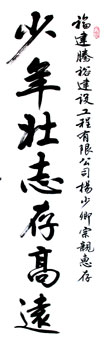 福建腾裕建设工程有限公司楊少卿宗親惠存
少年壮志存高遠